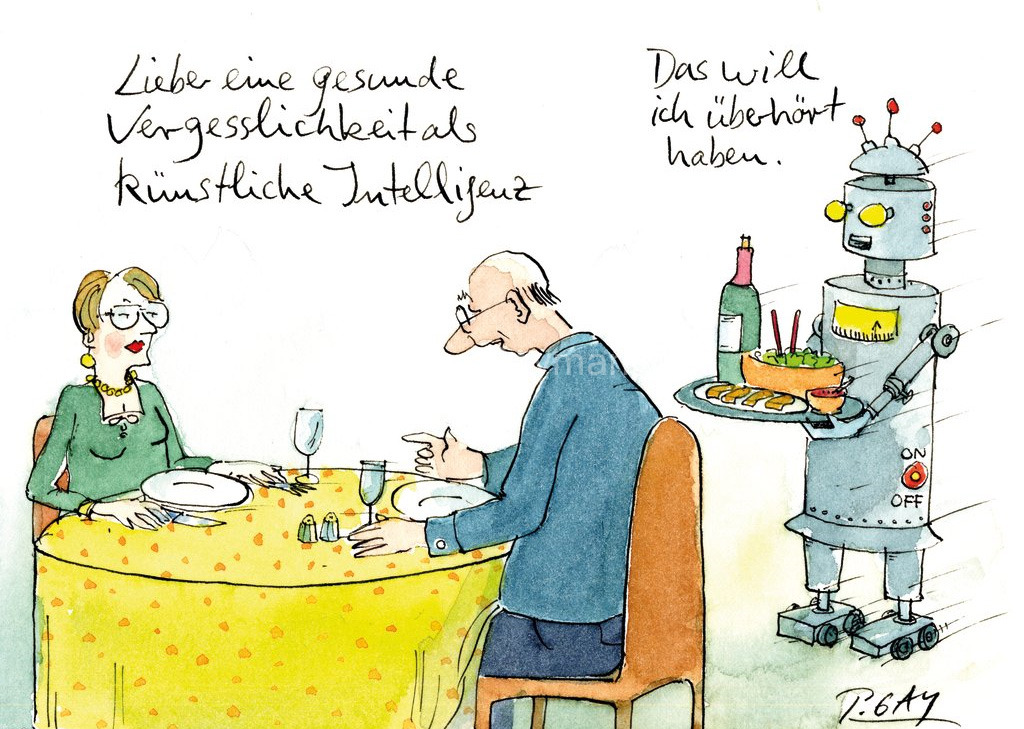 Lieber eine gesunde
Vergesslichkeit als
künstliche Intelligenz
Das will
ich überhört
haben.
ON
OFF
P. GAY